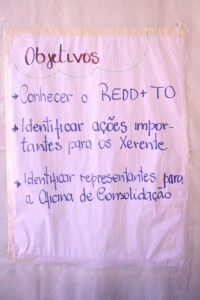 Objetivos
→ Conhecer o REDD+ TO
→ Identificar ações impor-
tantes para os Xerente
→ Identificar representantes para
a Oficina de Consolidação